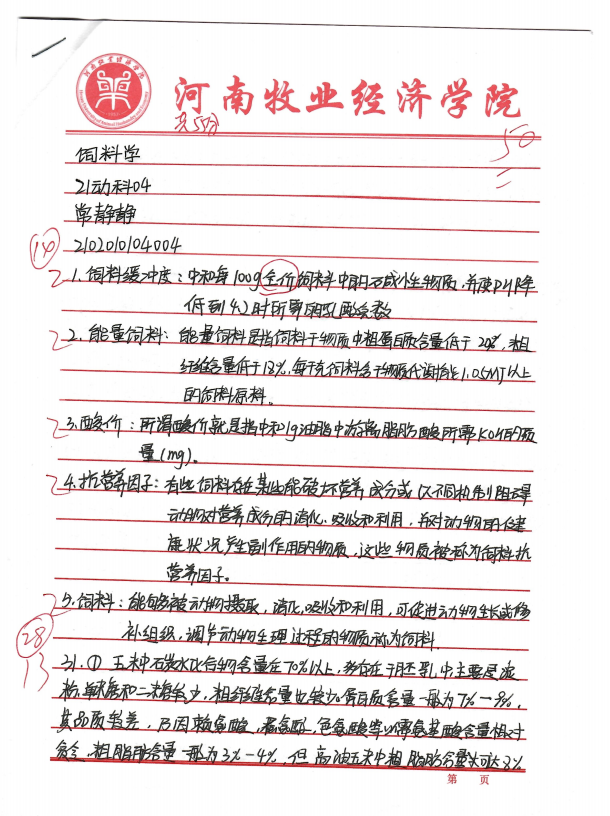 河南牧业经济学院
共5分
50
饲料学
21动科04
常静静
2102010104004
10
1.饲料缓冲度：中和每100g全价饲料中的石成小生物质，并使PH降
低到4.2时所需的乳酸克数
2.能量饲料：能量饲料是指饲料干物质中粗蛋白质含量低于20%，粗
纤维含量低于18%，每千克饲料含干物质代谢能1.05MJ以上
的饲料原料。
3.酸价：所谓酸价就是指中和1g油脂中游离脂肪酸所需KOH的质
量(mg)。
4.抗营养因子：有些饲料存在某些能破坏营养成分或以不同机制阻碍
动物对营养成分的消化、吸收和利用，并对动物的健
康状况产生副作用的物质，这些物质被称为饲料抗
营养因子。
5.饲料：能够被动物摄取，消化，吸收和利用，可促进动物生长或修
补组织，调节动物生理过程的物质称为饲料
28
13
31.①玉米中碳水化合物含量在70%以上，多存在于胚乳中主要是淀
粉，单糖和二糖较少，粗纤维含量也较少蛋白质含量一般为7%-9%，
其品质较差，因赖氨酸，蛋氨酸，色氨酸等必需氨基酸含量相对
贫乏，粗脂肪含量一般为3%-4%，但高油玉米中粗脂肪含量可达8%
第 页